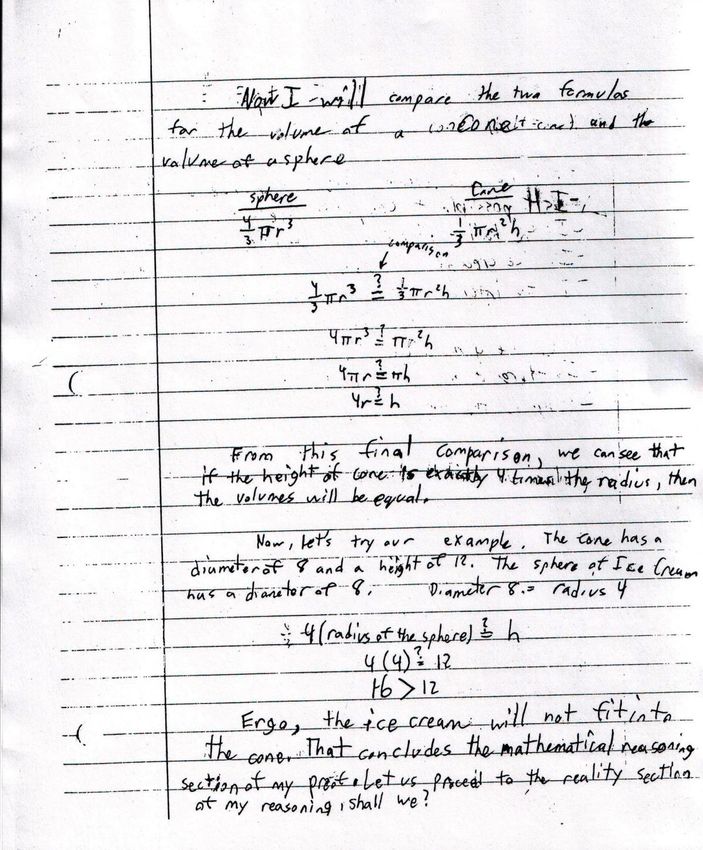 Now I will compare the two formulas
for the volume of a cone and the
volume of a sphere
sphere Cone
4/3 πr³ 1/3 πr²h
comparison
4/3 πr³ ≟ 1/3 πr²h
4πr³ ≟ πr²h
4πr ≟ πh
4r ≟ h
From this final comparison, we can see that
if the height of cone is exactly 4 times the radius, then
the volumes will be equal.
Now, let's try our example. The cone has a
diameter of 8 and a height of 12. The sphere of Ice Cream
has a diameter of 8. Diameter 8 = radius 4
4 (radius of the sphere) ≟ h
4 (4) ≟ 12
16 > 12
Ergo, the ice cream will not fit into
the cone. That concludes the mathematical reasoning
section of my proof. Let us proceed to the reality section
of my reasoning, shall we?